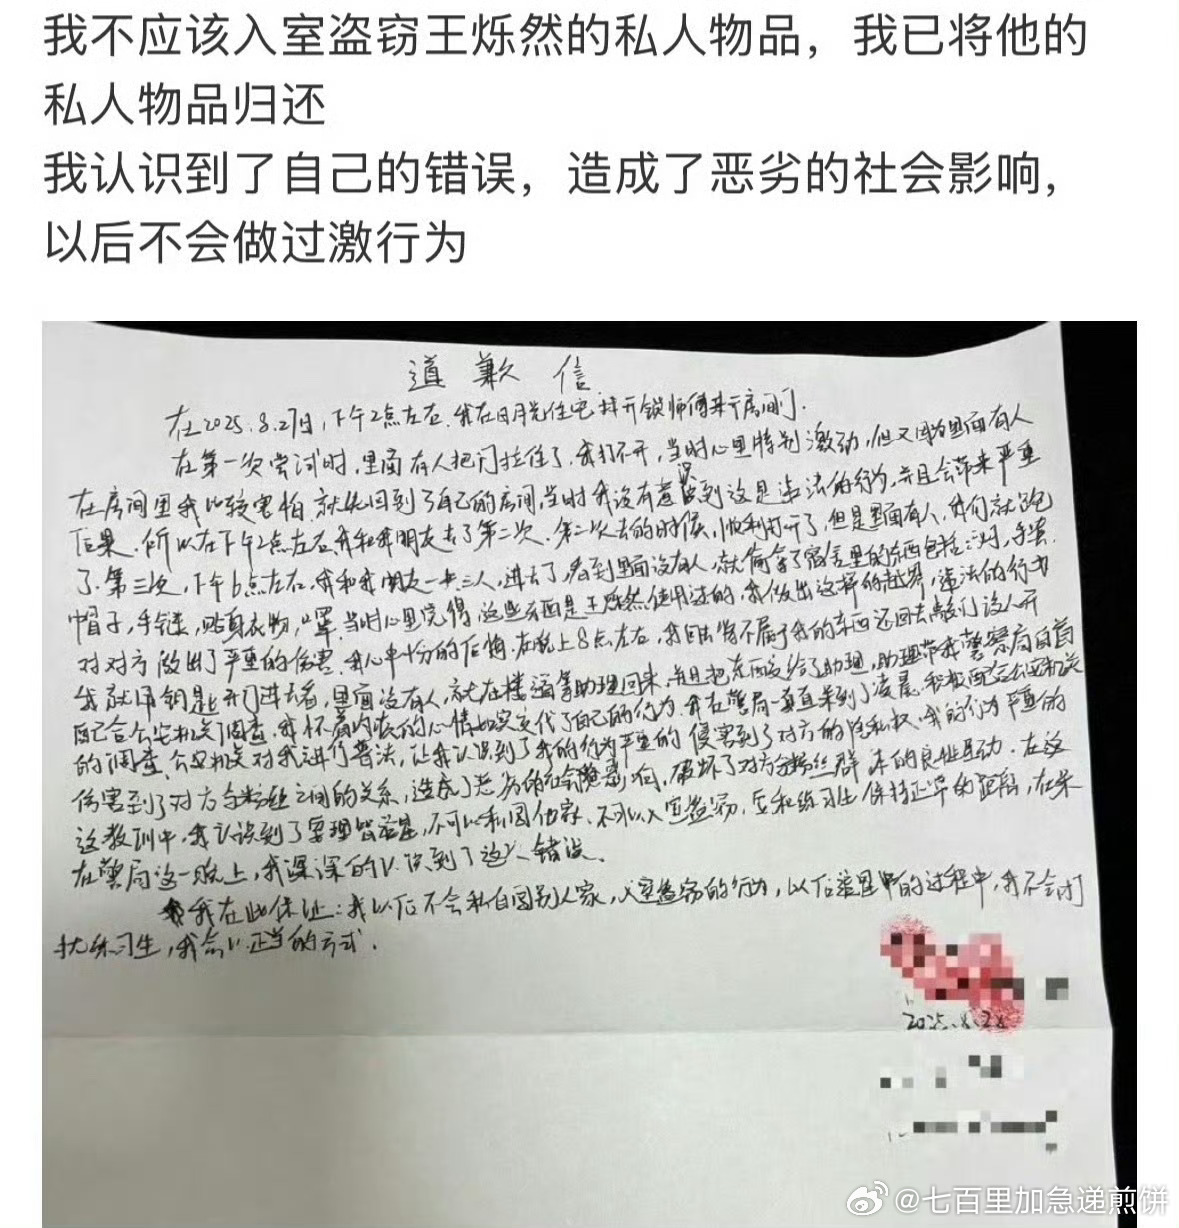 我不应该入室盗窃王烁然的私人物品，我已将他的
私人物品归还
我认识到了自己的错误，造成了恶劣的社会影响，
以后不会做过激行为
道歉信
在2025.8.27日，下午2点左右，我在日月光住宅找开锁师傅来开房间门.
在第一次尝试时，里面有人把门拉住了，我打不开，当时心里特别激动，但又因为里面有人
在房间里我比较害怕，就先回到了自己的房间，当时我没有意识到这是违法的行为，并且会带来严重
后果，所以在下午2点左右我和我朋友去了第二次，第二次去的时候，顺利打开了，但是里面有人，我们就跑
了，第三次，下午6点左右，我和我朋友一共三人，进去了，看到里面没有人，就偷拿了宿舍里的东西包括
帽子，手链，贴身衣物，口罩，当时心里觉得，这些东西是王烁然使用过的，我做出这样的越界，违法的行为
对对方做出了严重的伤害，我心中十分的后悔，在晚上8点左右，我回去将不属于我的东西还回去敲门没人开
我就用钥匙开门进去看，里面没有人，就在楼道等助理回来，并且把东西交给了助理，助理带我警察局自首
配合公安机关调查，我怀着内疚的心情如实交代了自己的行为，我在警局一直待到了凌晨，积极配合公安机关
的调查，公安机关对我进行普法，让我认识到了我的行为严重的侵害到了对方的隐私权，我的行为严重的
伤害到了对方与粉丝之间的关系，造成了恶劣的社会影响，破坏了对方粉丝群本的良性互动，在这
这教训中，我认识到了要理智追星，不可以私闯他家，不可以入室盗窃，应和练习生保持正常的距离，在呆
在警局这一晚上，我深深的认识到了这个错误。
我在此保证：我以后不会私自闯别人家，入室盗窃的行为，以后追星的过程中，我不会打
扰练习生，我会以正当的方式.
2025.8.28
@七百里加急递煎饼